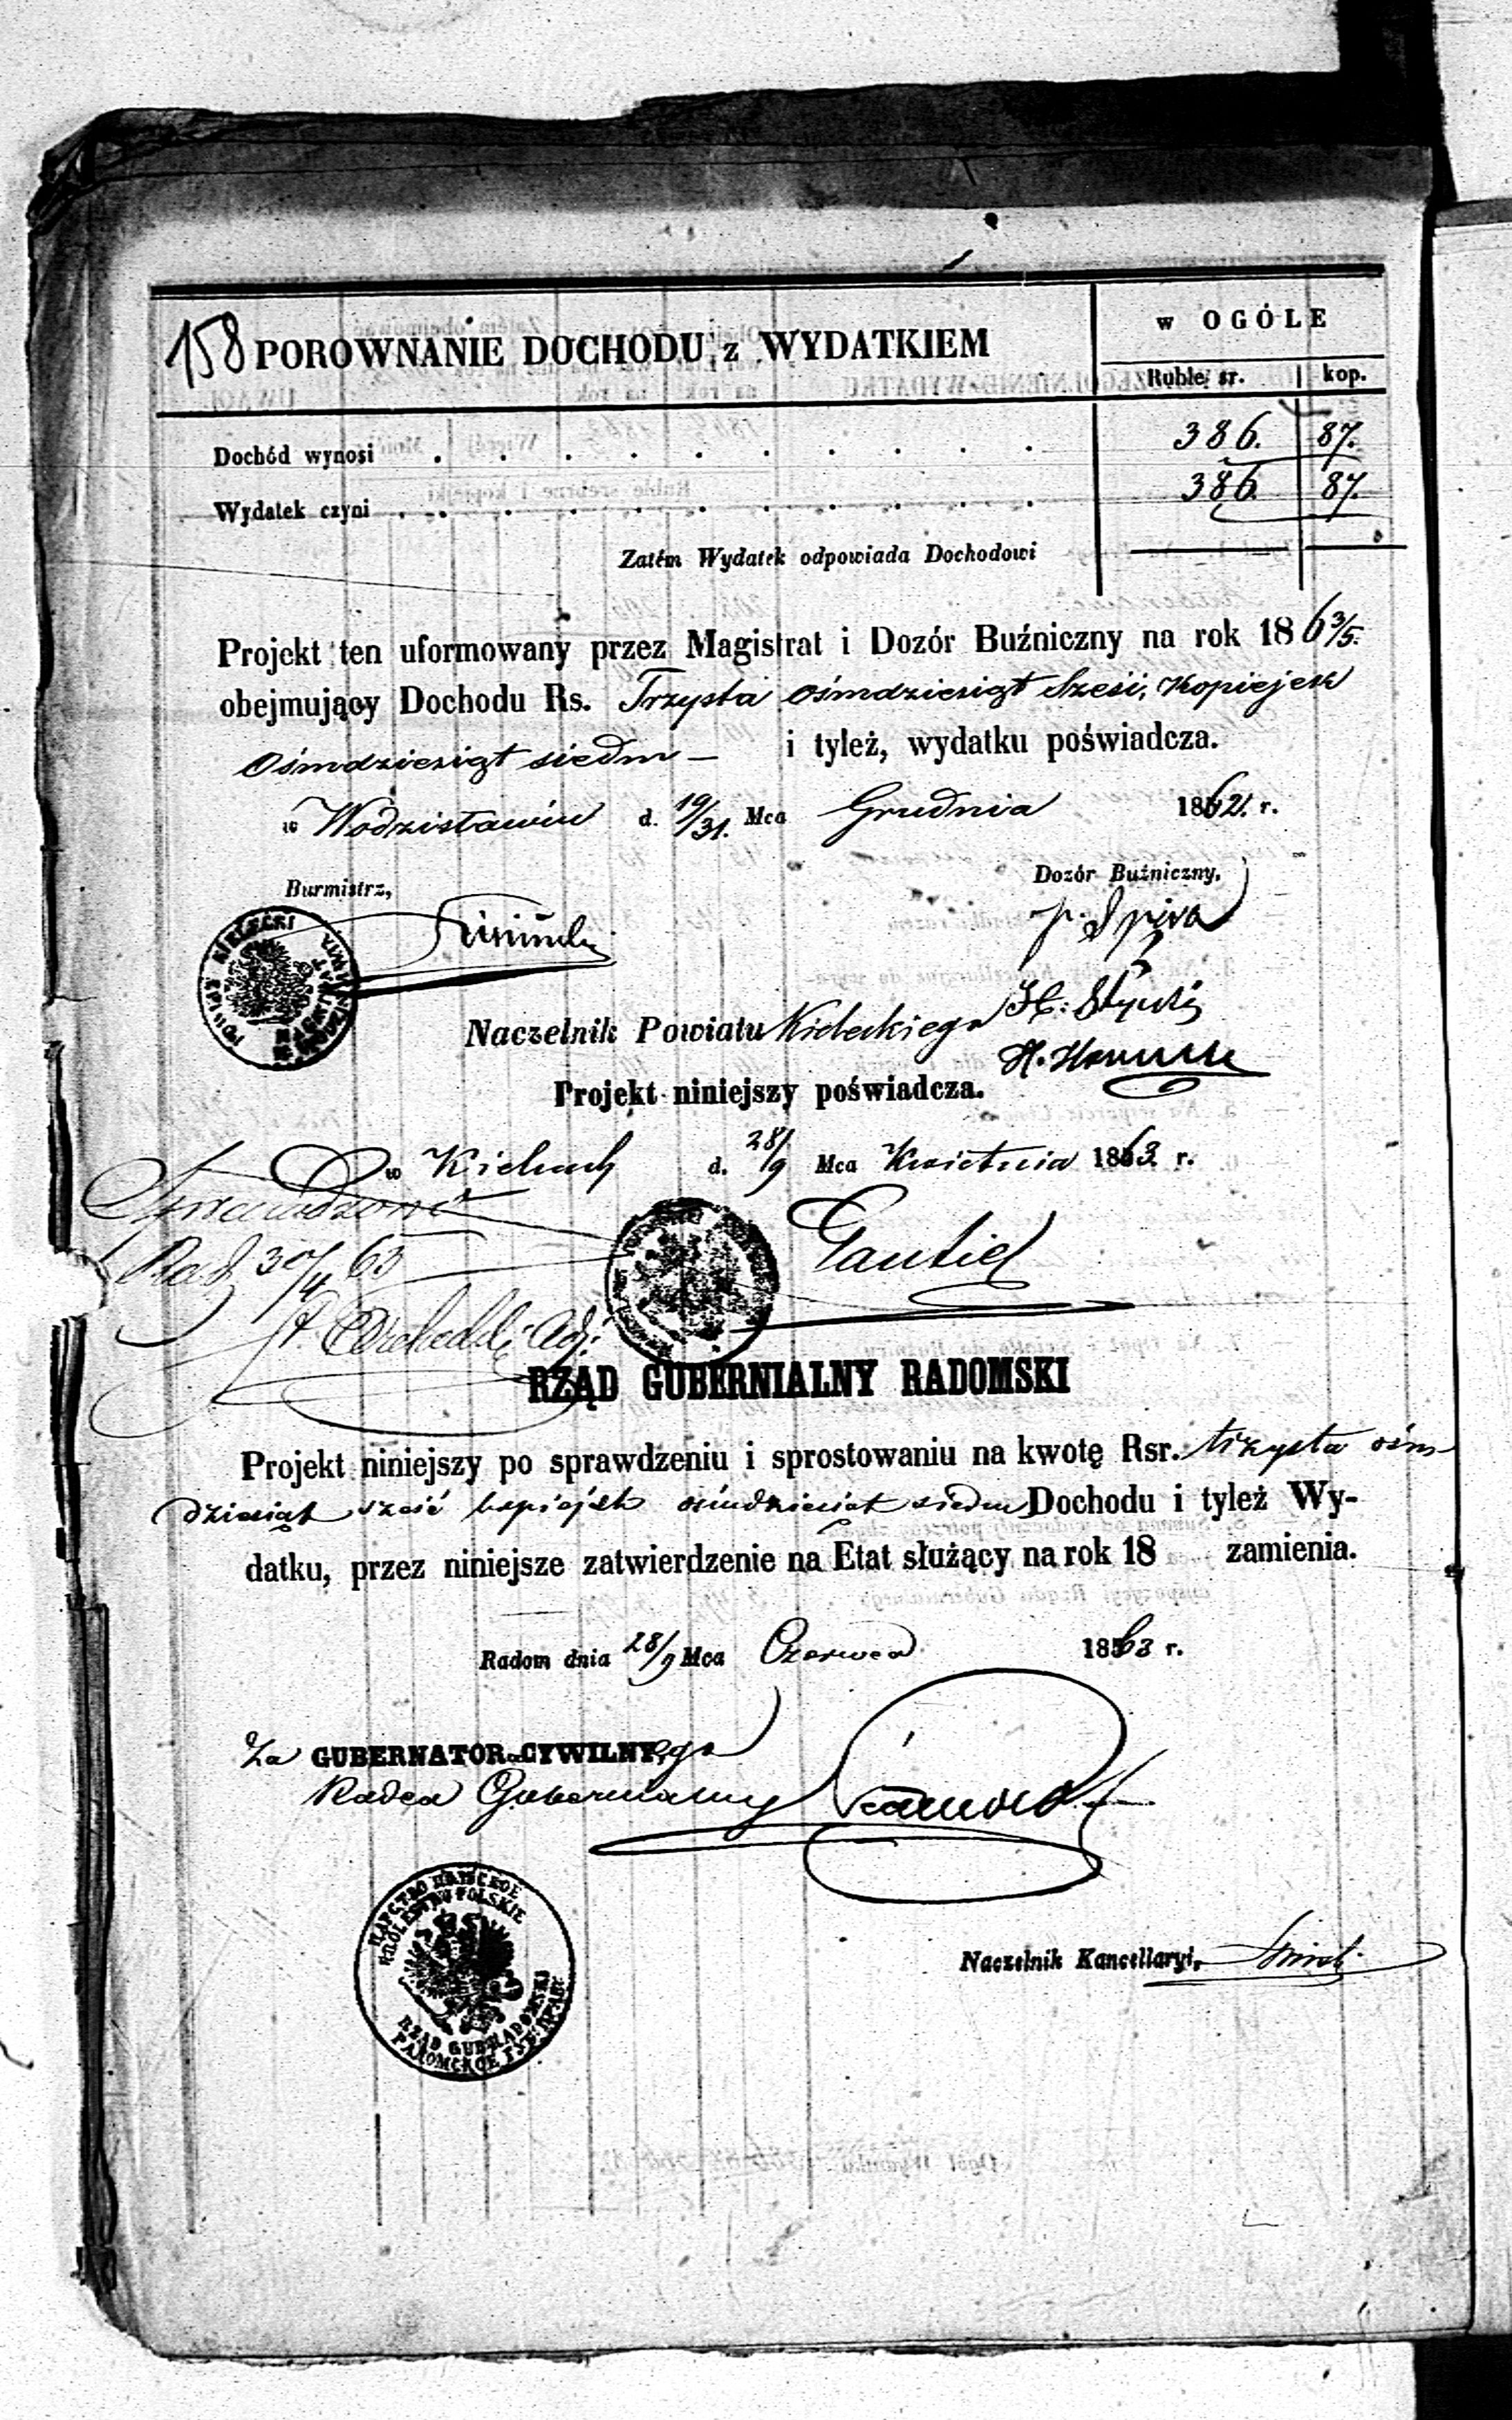 158 POROWNANIE DOCHODU z WYDATKIEM
w OGÓLE
Ruble sr. kop.
Dochód wynosi . . . . . . . . . . 386. 87.
Wydatek czyni . . . . . . . . . . 386. 87.
Zatém Wydatek odpowiada Dochodowi
Projekt ten uformowany przez Magistrat i Dozór Buźniczny na rok 1863/5.
obejmujący Dochodu Rs. Trzysta ośmdziesiąt sześć, Kopiejek
ośmdziesiąt siedm — i tyleż, wydatku poświadcza.
w Wodzisławiu d. 19/31. Mca Grudnia 1862. r.
Burmistrz,
Dozór Buźniczny,
Spira
Naczelnik Powiatu Kieleckiego
H.
Projekt niniejszy poświadcza.
w Kielcach d. 28/9 Mca Kwietnia 1863. r.
Sprawdzono
Rad 30/4 63
RZĄD GUBERNIALNY RADOMSKI
Projekt niniejszy po sprawdzeniu i sprostowaniu na kwotę Rsr. trzysta ośm-
dziesiąt sześć kopiejek ośmdziesiąt siedm Dochodu i tyleż Wy-
datku, przez niniejsze zatwierdzenie na Etat służący na rok 18 zamienia.
Radom dnia 28/9 Mca Czerwca 1863 r.
Za GUBERNATORa CYWILNYego
Radca Gubernialny
ЦАРСТВО ПОЛЬСКОЕ
KRÓLESTWO POLSKIE
RZĄD GUB: RADOMSKI
РАДОМСКОЕ ГУБ: ПРАВ:
Naczelnik Kancellaryi,